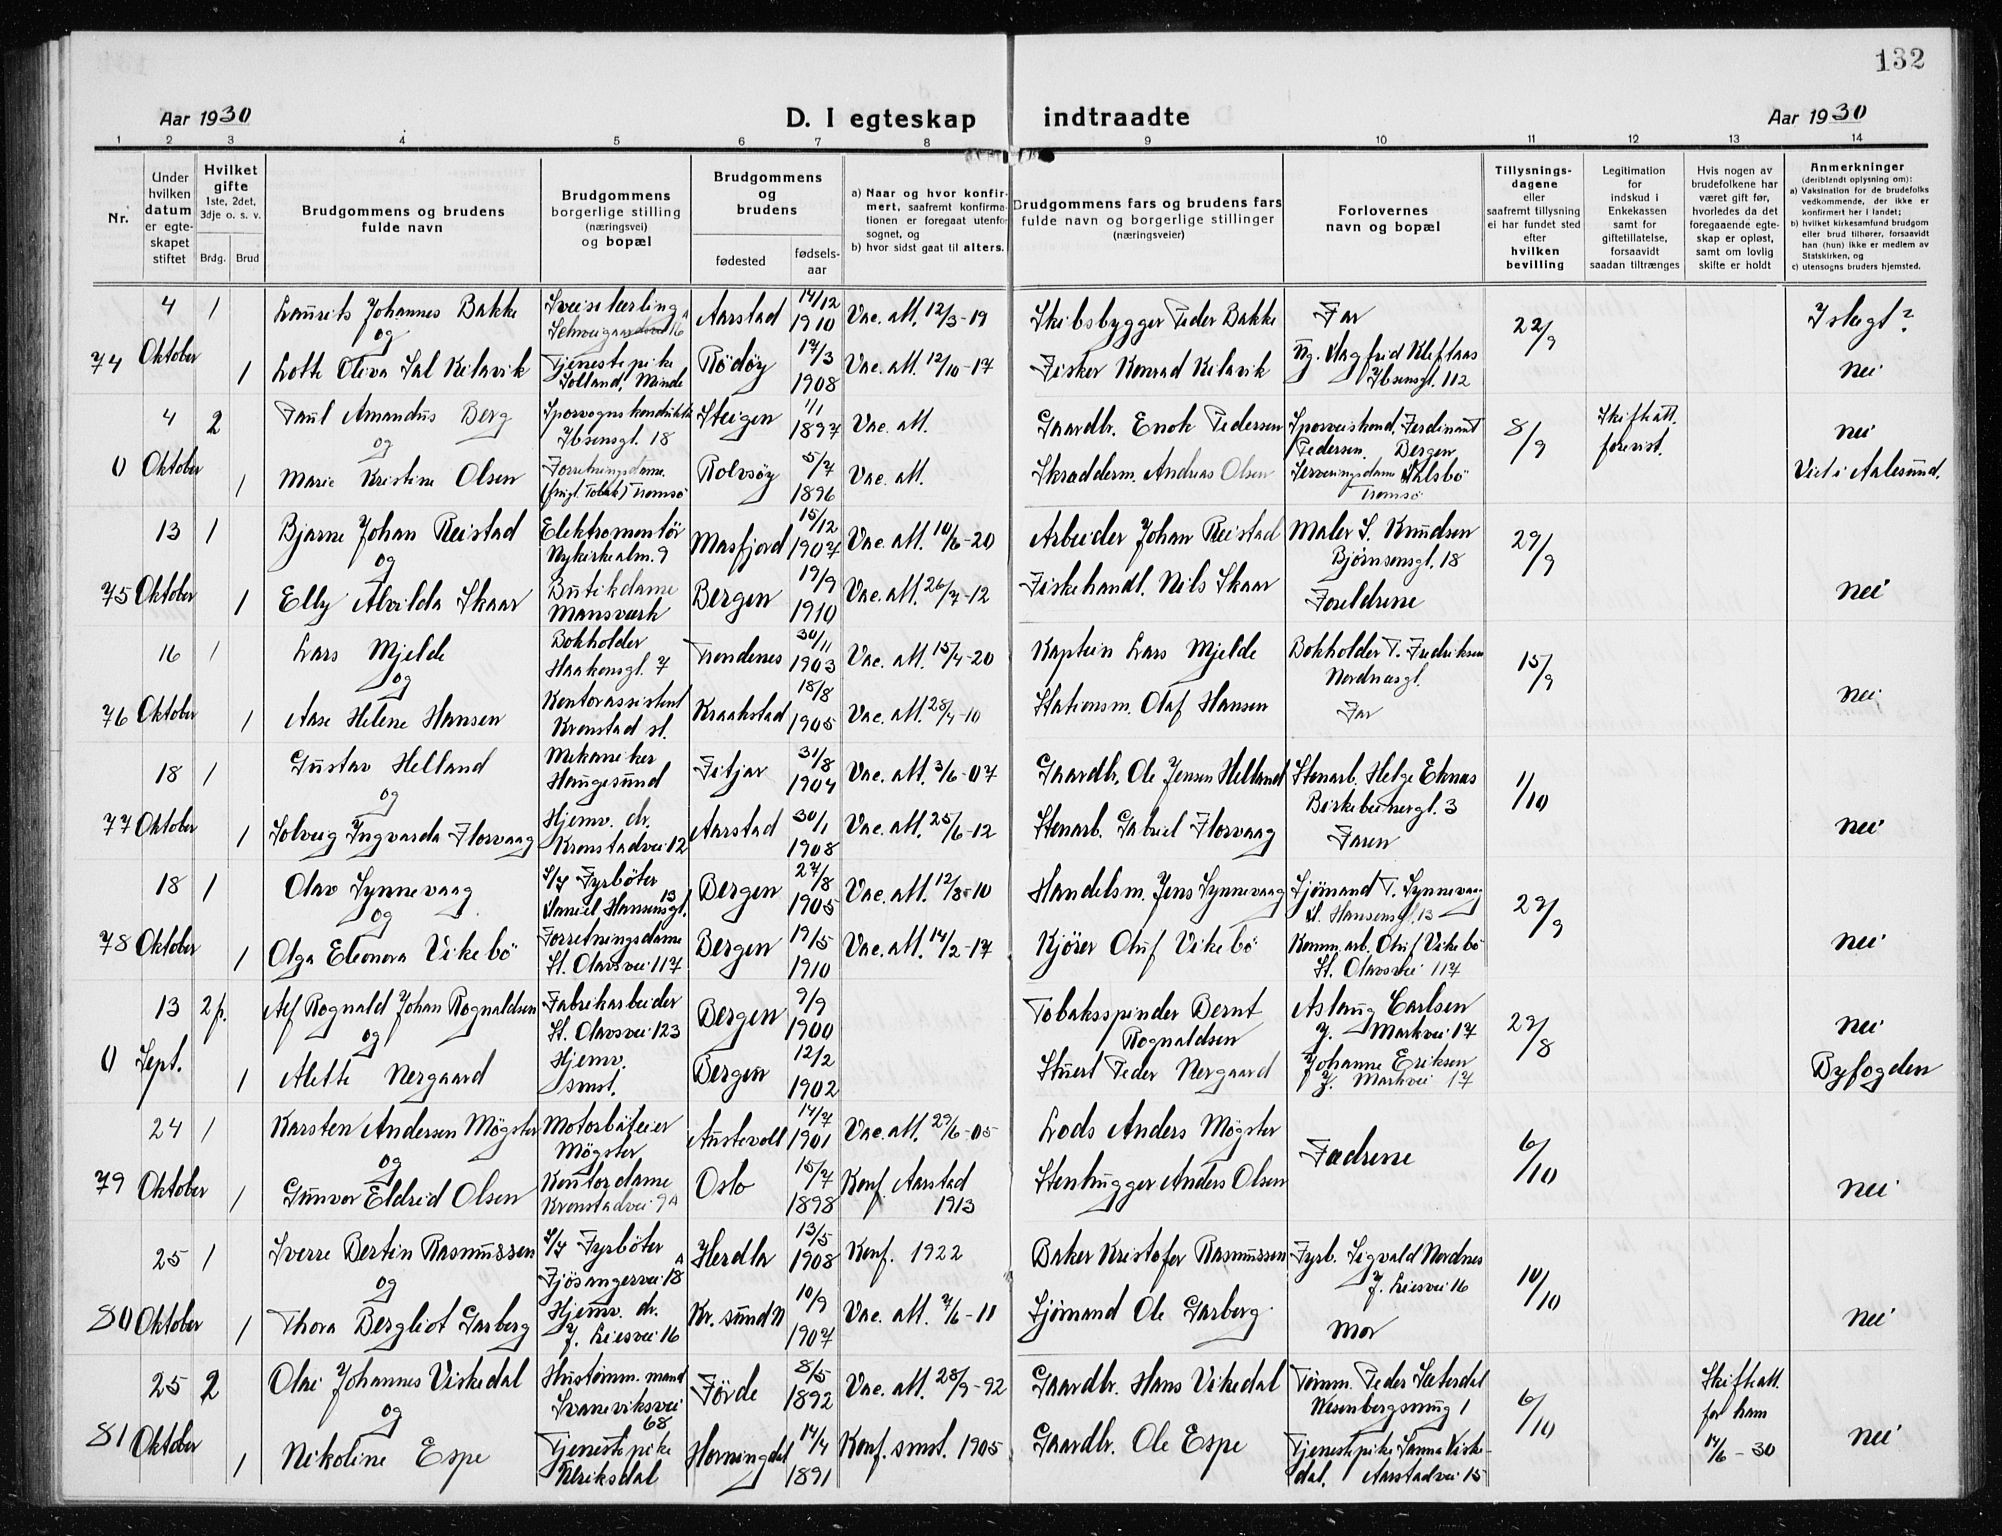 132
Aar 1930 D. I egteskap indtraadte Aar 1930
1 2 3 4 5 6 7 8 9 10 11 12 13 14
Nr.
Under hvilken datum er egteskapet stiftet
Hvilket gifte 1ste, 2det, 3dje o. s. v.
Brdg. Brud
Brudgommens og brudens fulde navn
Brudgommens borgerlige stilling (næringsvei) og bopæl
Brudgommens og brudens
fødested fødselsaar
a) Naar og hvor konfirmert, saafremt konfirmationen er foregaat utenfor sognet, og
b) hvor sidst gaat til alters.
Brudgommens fars og brudens fars fulde navn og borgerlige stillinger (næringsveier)
Forlovernes navn og bopæl
Tillysningsdagene eller saafremt tillysning ei har fundet sted efter hvilken bevilling
Legitimation for indskud i Enkekassen samt for giftetillatelse, forsaavidt saadan tiltrænges
Hvis nogen av brudefolkene har været gift før, hvorledes da det foregaaende egteskap er opløst, samt om lovlig skifte er holdt
Anmerkninger (deriblendt oplysning om):
a) Vaksination for de brudefolks vedkommende, der ikke er konfirmert her i landet;
b) hvilket kirkesamfund brudgom eller brud tilhører, forsaavidt han (hun) ikke er medlem av Statskirken, og
c) utensogns bruders hjemsted.
4 1 Laurits Johannes Bakke Sveiselærling Aarstad 14/12 1910 Vac. att. 12/3-19 Skibsbygger Peder Bakke Far 22/9 I slegt?
og
74 Oktober 1 Lotte Oliva Sal Kilavik Tjenestepike Solland, Minde Rödöy 17/3 1908 Vac. att. 12/10-17 Fisker Konrad Kilavik Dagfrid Kleftaas Ibsensgt. 112 nei
4 2 Paul Amandus Berg Sporvognskonduktör Ibsensgt. 18 Steigen 1/1 1897 Vac. att. Gaardbr. Enok Pedersen Sporveiskond. Ferdinant Pedersen. Bergen 8/9 Skifteatt. forevist. nei
og
0 Oktober 1 Marie Kristine Olsen Forretningsdame Tromsö Rolvsöy 5/7 1896 Vac. att. Skradderm. Andreas Olsen Serveringsdame Tromsö Viet i Aalesund.
13 1 Bjarne Johan Reistad Elektromontör Nykirkealm. 9 Masfjord 15/12 1907 Vac. att. 10/6-20 Arbeider Johan Reistad Maler S. Knudsen Bjørnsensgt. 18 29/9
og
75 Oktober 1 Elly Alvilda Skaar Butikdame Mansverk Bergen 19/9 1910 Vac. att. 26/7-12 Fiskehandl. Nils Skaar Foreldrene nei
16 1 Lars Mjelde Bokholder Haakonsgt. 7 Trondenes 30/11 1903 Vac. att. 15/4-20 Kaptein Lars Mjelde Bokholder T. Fredriksen Nordnesgt. 15/9
og
76 Oktober 1 Aase Helene Hansen Kontorassistent Kronstad st. Kraakstad 18/8 1905 Vac. att. 28/4-10 Stationsm. Olaf Hansen Far nei
18 1 Gustav Helland Mekaniker Haugesund Fitjar 31/8 1904 Vac. att. 3/6-07 Gaardbr. Ole Jensen Helland Stenarb. Helge Eknes Birkebeinergt. 3 1/10
og
77 Oktober 1 Solveig Ingvarda Florvaag Hjemv. dr. Kronstadvei 12 Aarstad 30/1 1908 Vac. att. 25/6-12 Stenarb. Gabriel Florvaag Faren nei
18 1 Olav Synnevaag S/J Fyrböter Daniel Hansensgt. 13 Bergen 27/8 1905 Vac. att. 12/8-10 Handelsm. Jens Synnevaag Sjömand T. Synnevaag D. Hansensgt. 13 29/9
og
78 Oktober 1 Olga Eleonora Vikebö Forretningsdame St. Olavsvei 117 Bergen 19/5 1910 Vac. att. 14/2-17 Kjörer Oluf Vikebö Komm. arb. Oluf Vikebö St. Olavsvei 117 nei
13 2 f. Alf Rognald Johan Rognaldsen Fabrikarbeider St. Olavsvei 123 Bergen 9/9 1900 Tobaksspinder Bernt Rognaldsen Aslaug Carlsen J. Markvei 17 29/8 nei
og
0 Sept. 1 Alette Nergaard Hjemv. smst. Bergen 12/2 1902 Stuert Peder Nergaard Johanne Eriksen J. Markvei 17 Byfogden
24 1 Karsten Andersen Mögster Motorbåteier Mögster Austevoll 14/7 1901 Vac. att. 29/6-05 Lods Anders Mögster Fædrene 6/10
og
79 Oktober 1 Gunvor Eldrid Olsen Kontordame Kronstadvei 9A Oslo 15/7 1898 Konf. Aarstad 1913 Stenhugger Anders Olsen nei
25 1 Sverre Bertin Rasmussen S/J Fyrböter Fjösangervei 18 A Herdla 13/5 1908 Konf. 1922 Baker Kristofer Rasmussen Fyrb. Sigvald Nordnes J. Liesvei 16 10/10
og
80 Oktober 1 Thora Bergliot Garberg Hjemv. dr. J. Liesvei 16 Kr. sund N 10/9 1907 Vac. att. 7/6-11 Sjömand Ole Garberg Mor nei
25 2 Olai Johannes Viskedal Hustömm. mand Svaneviksvei 68 Förde 8/5 1892 Vac. att. 28/9-92 Gaardbr. Hans Vikedal Tömm. Peder Sæterdal Wesenbergsmug 1 6/10 Skifteatt. for ham 14/6-30
og
81 Oktober 1 Nikoline Espe Tjenestepike Ulriksdal Horningdal 14/4 1891 Konf. smst. 1905 Gaardbr. Ole Espe Tjenestepike Sanna Viskedal. Aarstadvei 15 nei